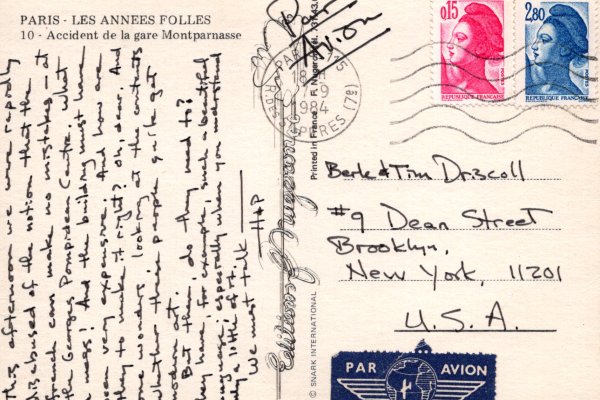 PARIS - LES ANNEES FOLLES
10 - Accident de la gare Montparnasse
This afternoon we were rapidly
disabused of the notion that the
French can make no mistakes - at
the Georges Pompideau Centre. What
a mess! And the building must have
been very expensive. And how are
they to make it right? Oh, dear. And
one wonders, looking at the contents
whether these people quite get
modern art.
But then, do they need to?
They have, for example, such a beautiful
language, especially when you understand
only a little of it.
We must talk —
H+P
Editions F. Nugeron
© SNARK INTERNATIONAL
Printed in France F. Nugeron
Par
Avion
PARIS
1984
(7e)
0,15
REPUBLIQUE FRANÇAISE
2,80
REPUBLIQUE FRANÇAISE
Berle & Tim Driscoll
#9 Dean Street
Brooklyn,
New York, 11201
U.S.A.
PAR AVION